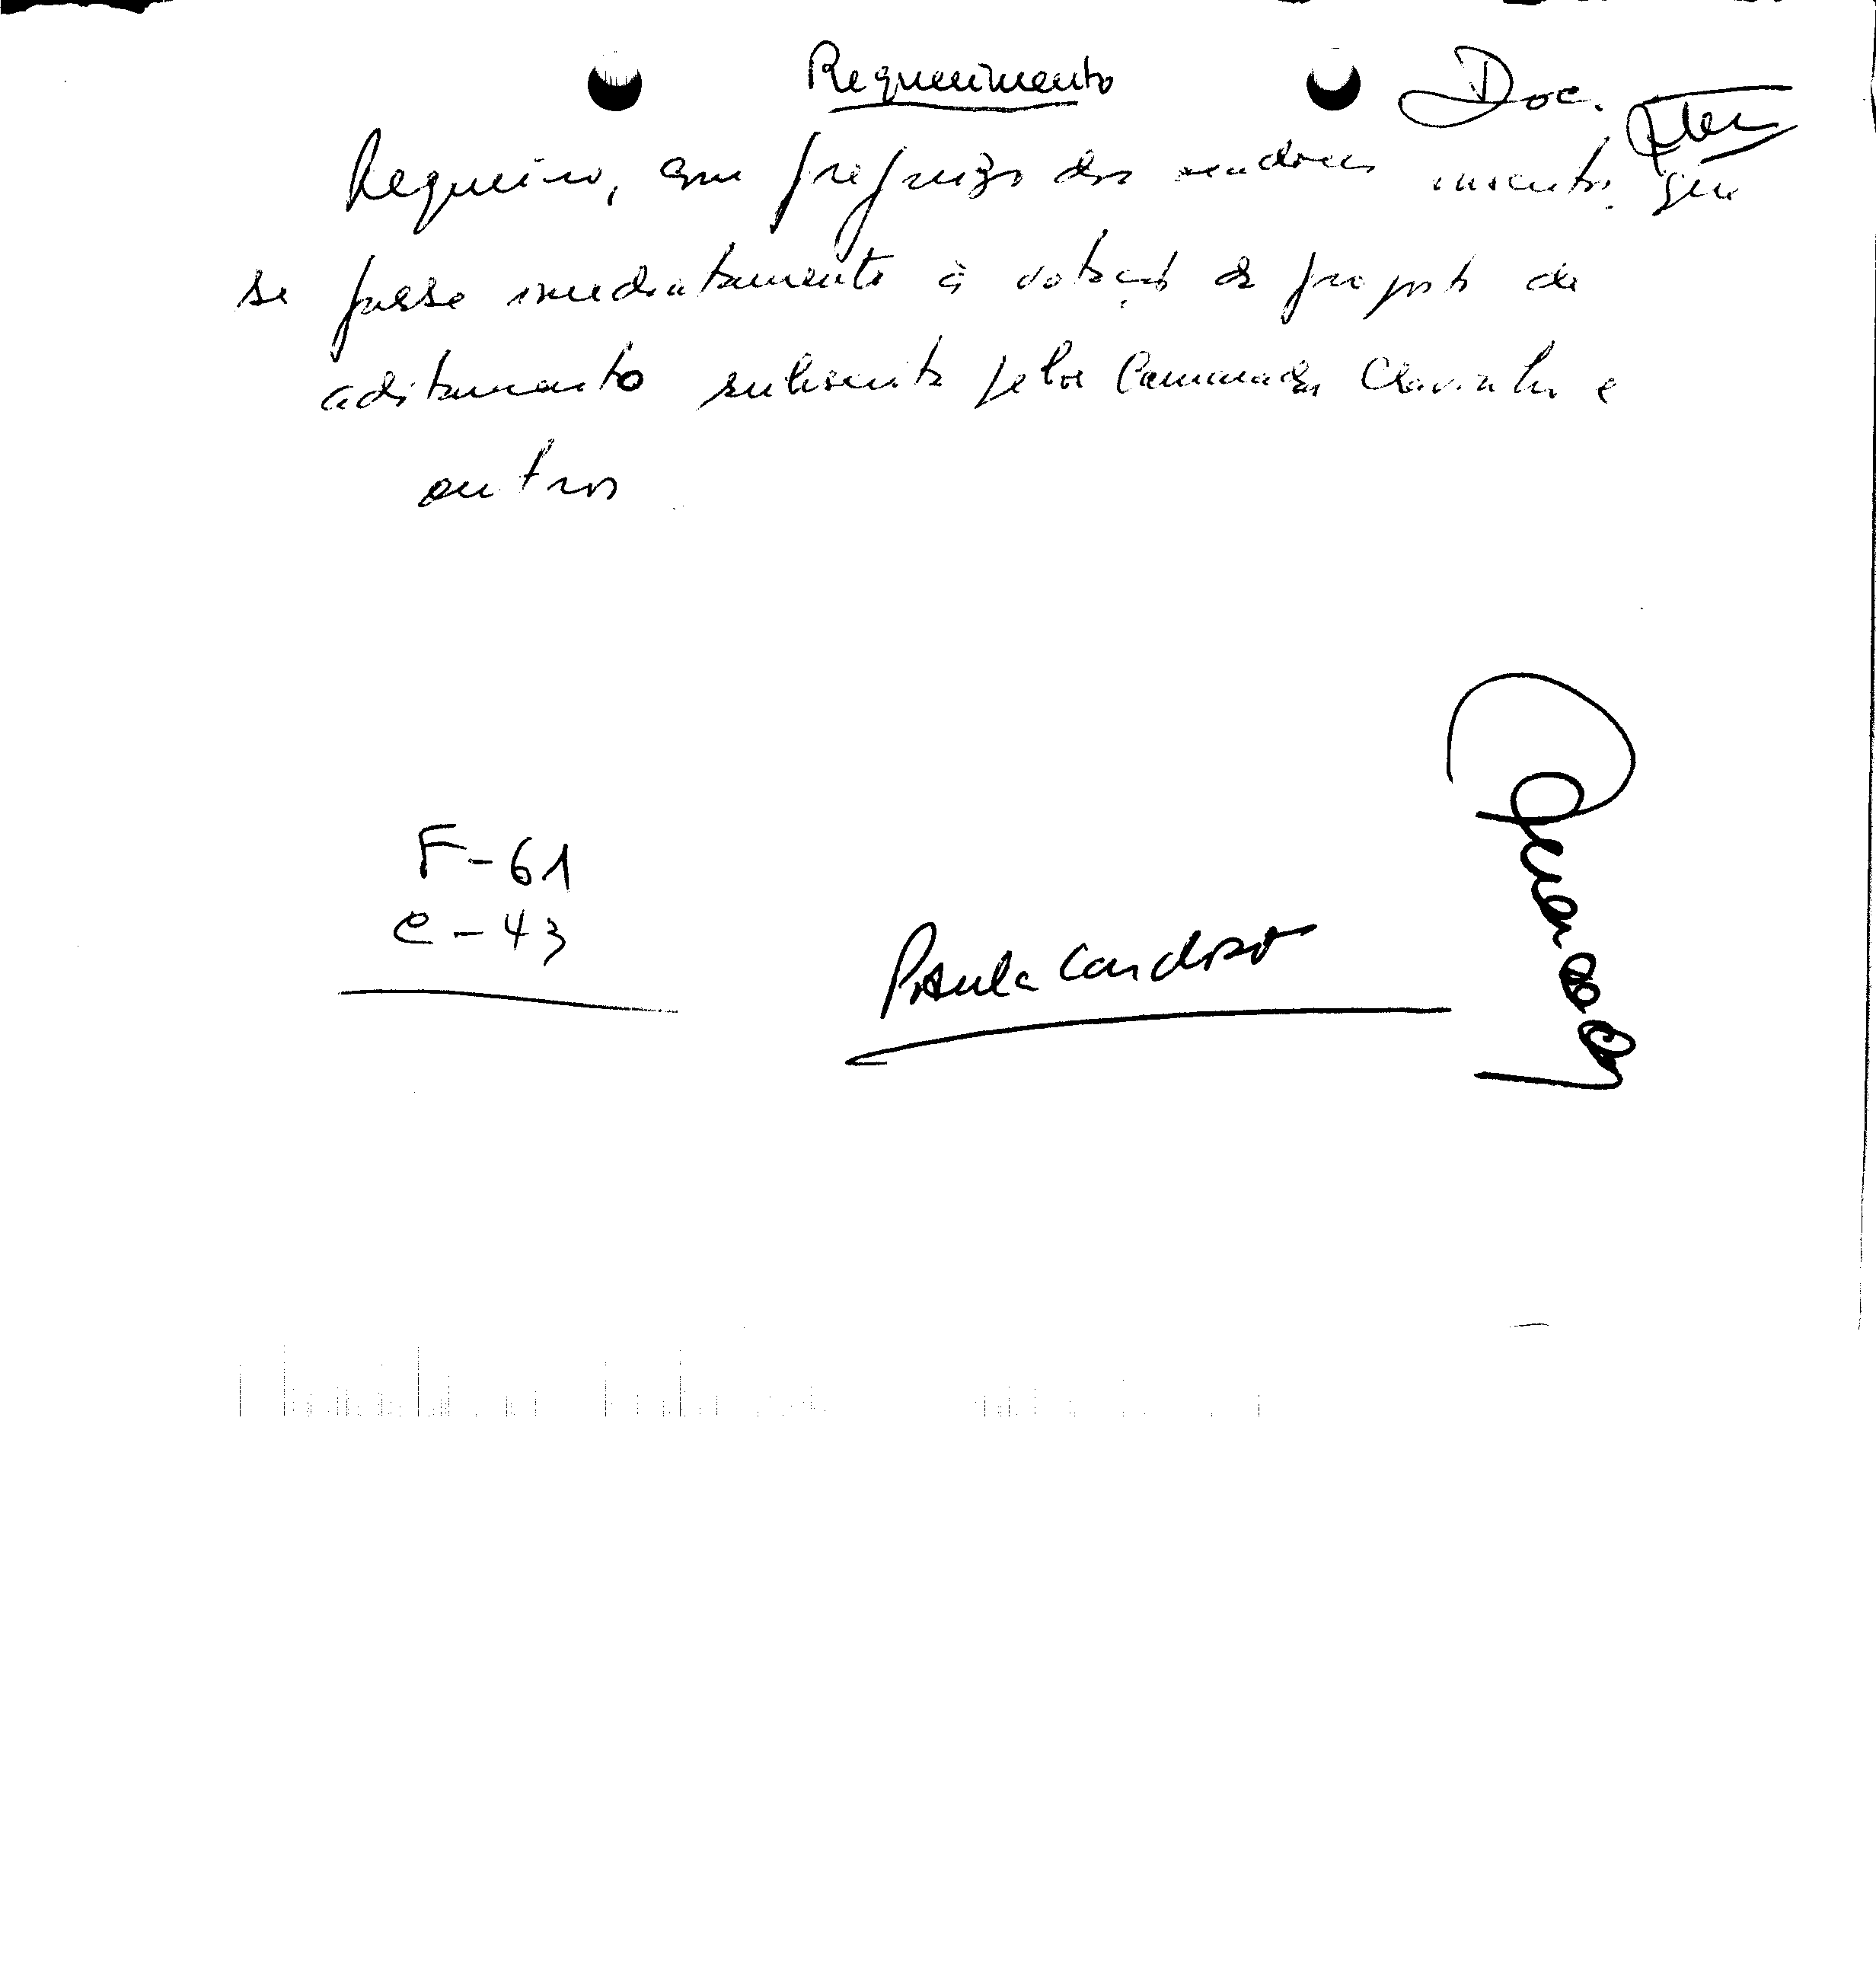 Requerimento
Doc.
Requeiro, com prejuizo dos oradores inscritos, que
se passe imediatamente à votação da proposta de
aditamento subscrita pelos Camaradas Clavinha e
outros
F-61
C-43
Paula Cardoso